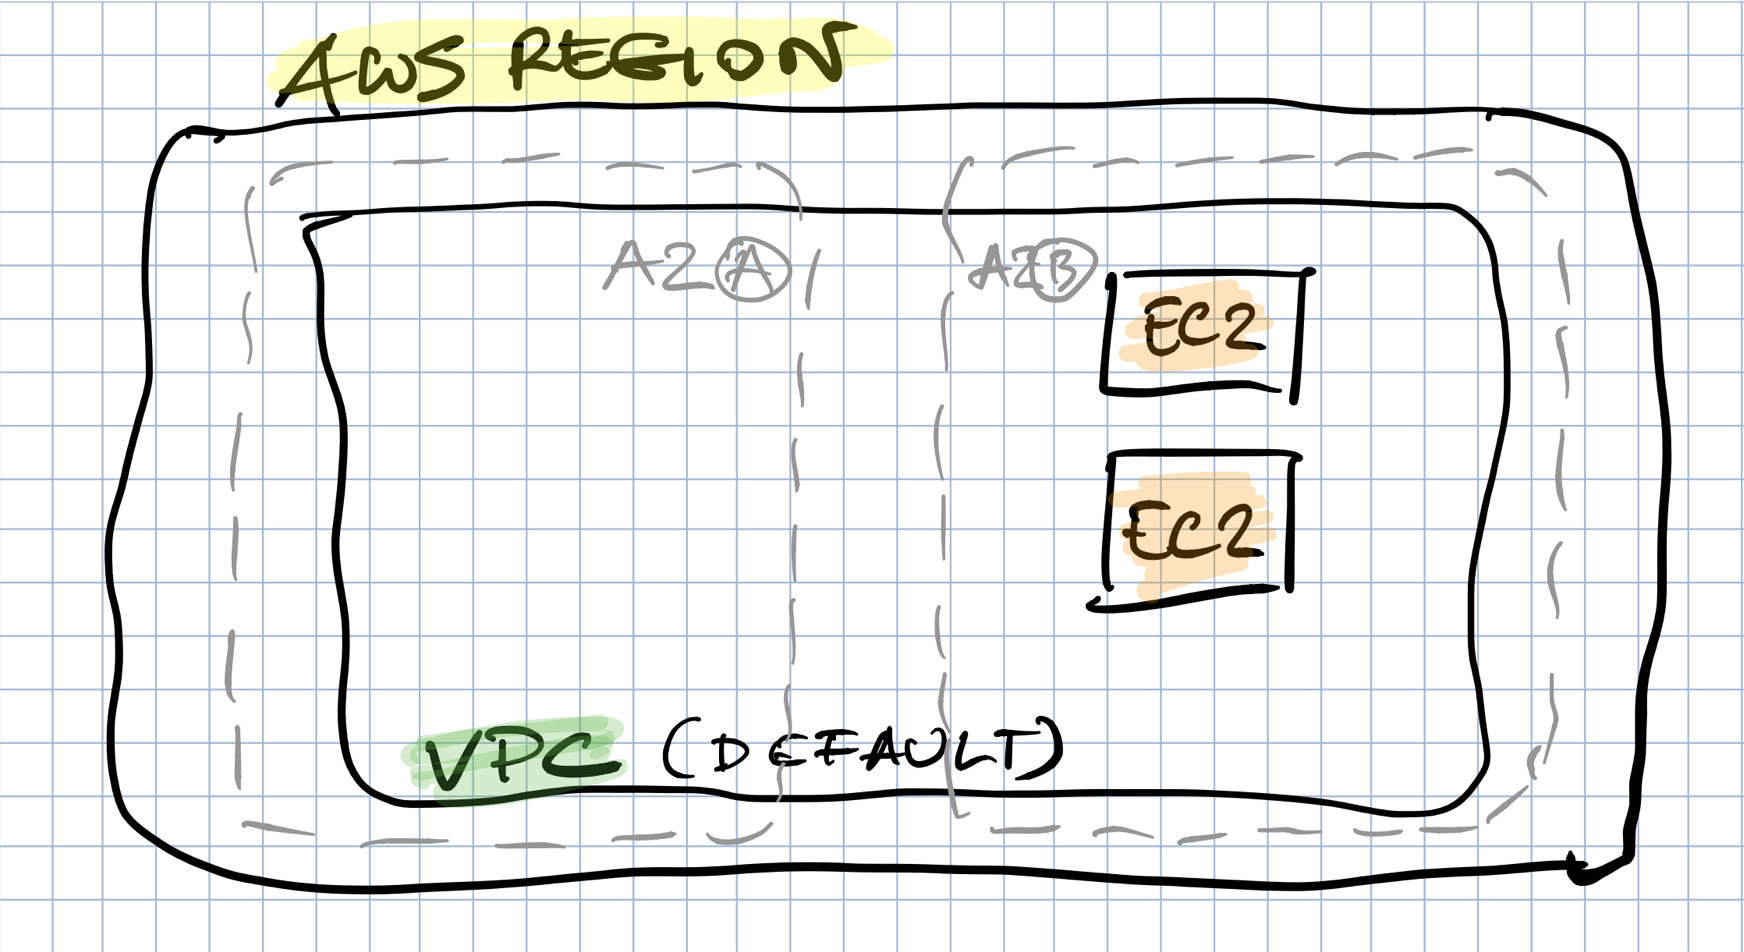 AWS REGION
AZ A
AZ B
EC2
EC2
VPC (DEFAULT)